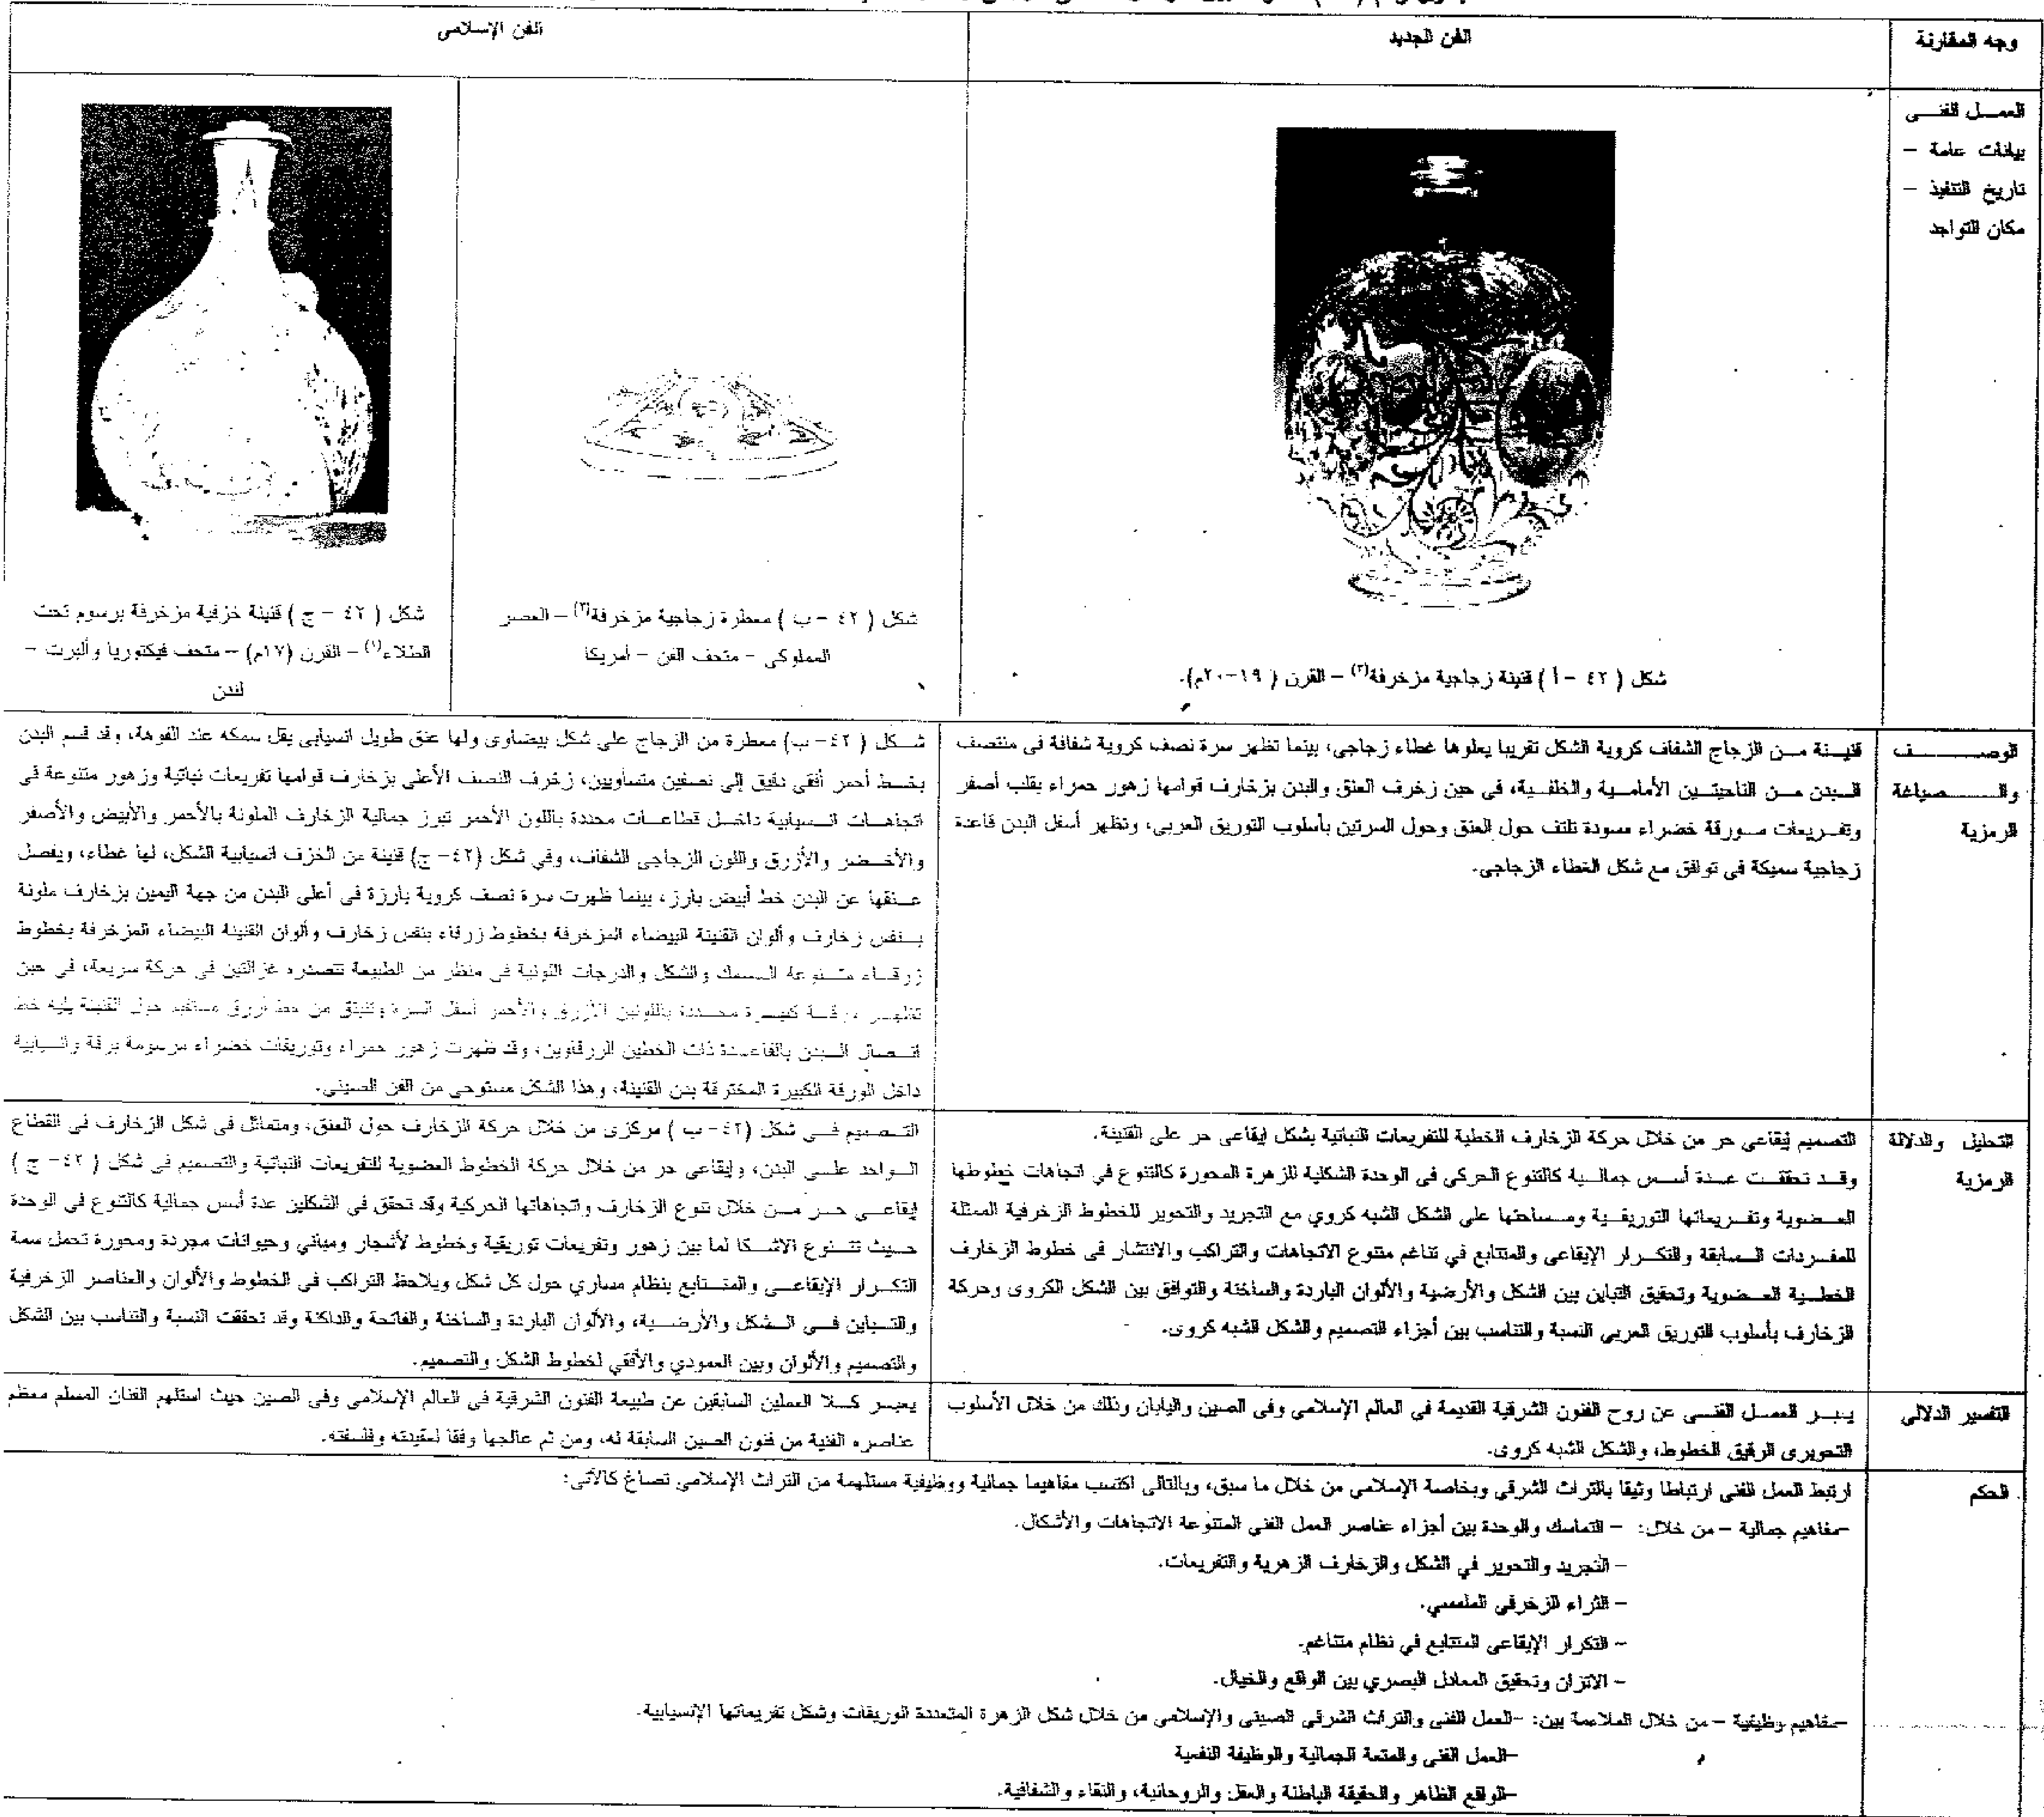 وجه المقارنة
الفن الجديد
الفن الإسلامى
العمل الفنى
بيانات عامة –
تاريخ التنفيذ –
مكان التواجد
شكل ( ٤٢ – أ ) قنينة زجاجية مزخرفة(٢) – القرن ( ١٩–٢٠م).
شكل ( ٤٢ – ب ) معطرة زجاجية مزخرفة(٣) – العصر
المملوكى – متحف الفن – أمريكا
شكل ( ٤٢ – ج ) قنينة خزفية مزخرفة برسوم تحت
الطلاء(١) – القرن (١٧م) – متحف فيكتوريا وألبرت –
لندن
الوصف
والصياغة
الرمزية
قنينة من الزجاج الشفاف كروية الشكل تقريبا يعلوها غطاء زجاجى، بينما تظهر سرة نصف كروية شفافة فى منتصف
البدن من الناحيتين الأمامية والخلفية، فى حين زخرف العنق والبدن بزخارف قوامها زهور حمراء بقلب أصفر
وتفريعات مورقة خضراء مسودة تلتف حول العنق وحول السرتين بأسلوب التوريق العربى، وتظهر أسفل البدن قاعدة
زجاجية سميكة فى توافق مع شكل الغطاء الزجاجى.
شكل ( ٤٢– ب) معطرة من الزجاج على شكل بيضاوى ولها عنق طويل انسيابى يقل سمكه عند الفوهة، وقد قسم البدن
بخط أحمر أفقى دقيق إلى نصفين متساويين، زخرف النصف الأعلى بزخارف قوامها تفريعات نباتية وزهور متنوعة فى
اتجاهات انسيابية داخل قطاعات محددة باللون الأحمر تبرز جمالية الزخارف الملونة بالأحمر والأبيض والأصفر
والأخضر والأزرق واللون الزجاجى الشفاف، وفي شكل (٤٢– ج) قنينة من الخزف انسيابية الشكل، لها غطاء، ويفصل
عنقها عن البدن خط أبيض بارز، بينما ظهرت سرة نصف كروية بارزة فى أعلى البدن من جهة اليمين بزخارف ملونة
بنفس زخارف وألوان القنينة البيضاء المزخرفة بخطوط زرقاء بنفس زخارف وألوان القنينة البيضاء المزخرفة بخطوط
زرقاء متنوعة السمك والشكل والدرجات اللونية فى منظر من الطبيعة تتصدره غزالتين فى حركة سريعة، فى حين
تظهر ورقة كبيرة محددة باللونين الأزرق والأحمر أسفل السرة وتنبثق من خط أزرق حول القنينة يليه خط
اتصال البدن بالقاعدة ذات الخطين الزرقاوين، وقد ظهرت زهور حمراء وتوريقات خضراء مرسومة برقة وانسيابية
داخل الورقة الكبيرة المخترقة بدن القنينة، وهذا الشكل مستوحى من الفن الصينى.
التحليل والدلالة
الرمزية
التصميم إيقاعي حر من خلال حركة الزخارف الخطية للتفريعات النباتية بشكل إيقاعى حر على القنينة.
وقد تحققت عدة أسس جمالية كالتنوع الحركى فى الوحدة الشكلية للزهرة المحورة كالتنوع في اتجاهات خطوطها
العضوية وتفريعاتها التوريقية ومساحتها على الشكل الشبه كروي مع التجريد والتحوير للخطوط الزخرفية الممثلة
للمفردات السابقة والتكرار الإيقاعى والمتتابع في تناغم متنوع الاتجاهات والتراكب والانتشار فى خطوط الزخارف
الخطية العضوية وتحقيق التباين بين الشكل والأرضية والألوان الباردة والساخنة والتوافق بين الشكل الكروى وحركة
الزخارف بأسلوب التوريق العربى النسبة والتناسب بين أجزاء التصميم والشكل الشبه كروى.
التصميم فى شكل (٤٢– ب ) مركزى من خلال حركة الزخارف حول العنق، ومتماثل فى شكل الزخارف فى القطاع
الواحد على البدن، وإيقاعى حر من خلال حركة الخطوط العضوية للتفريعات النباتية والتصميم فى شكل ( ٤٢– ج )
إيقاعى حر من خلال تنوع الزخارف واتجاهاتها الحركية وقد تحقق في الشكلين عدة أسس جمالية كالتنوع فى الوحدة
حيث تتنوع الاشكا لما بين زهور وتفريعات توريقية وخطوط لأشجار ومبانى وحيوانات مجردة ومحورة تحمل سمة
التكرار الإيقاعى والمتتابع بنظام مسارى حول كل شكل ويلاحظ التراكب فى الخطوط والألوان والعناصر الزخرفية
والتباين فى الشكل والأرضية، والألوان الباردة والساخنة والفاتحة والداكنة وقد تحققت النسبة والتناسب بين الشكل
والتصميم والألوان وبين العمودي والأفقي لخطوط الشكل والتصميم.
التفسير الدلالى
يعبر العمل الفنى عن روح الفنون الشرقية القديمة فى العالم الإسلامى وفى الصين واليابان وذلك من خلال الأسلوب
التحويرى الرقيق الخطوط، والشكل الشبه كروى.
يعبر كلا العملين السابقين عن طبيعة الفنون الشرقية فى العالم الإسلامى وفى الصين حيث استلهم الفنان المسلم معظم
عناصره الفنية من فنون الصين السابقة له، ومن ثم عالجها وفقا لعقيدته وفلسفته.
الحكم
ارتبط العمل الفنى ارتباطا وثيقا بالتراث الشرقي وبخاصة الإسلامي من خلال ما سبق، وبالتالى اكتسب مفاهيما جمالية ووظيفية مستلهمة من التراث الإسلامى تصاغ كالآتى:
–مفاهيم جمالية – من خلال: – التماسك والوحدة بين أجزاء عناصر العمل الفنى المتنوعة الاتجاهات والأشكال.
– التجريد والتحوير في الشكل والزخارف الزهرية والتفريعات.
– الثراء الزخرفى الملمسي.
– التكرار الإيقاعى المتتابع في نظام متناغم.
– الاتزان وتحقيق المعادل البصري بين الواقع والخيال.
–مفاهيم وظيفية – من خلال الملائمة بين: –العمل الفنى والتراث الشرقى الصينى والإسلامى من خلال شكل الزهرة المتعددة الوريقات وشكل تفريعاتها الإنسيابية.
–العمل الفنى والمتعة الجمالية والوظيفة النفسية
–الواقع الظاهر والحقيقة الباطنة والعقل والروحانية، والنقاء والشفافية.